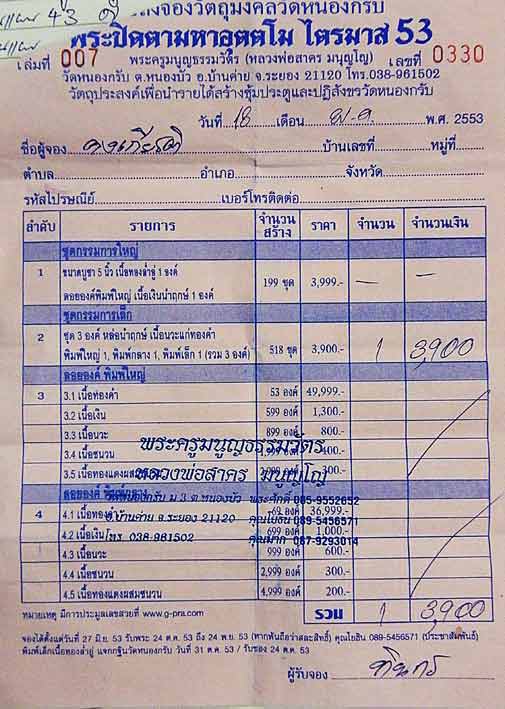 ใบสั่งจองวัตถุมงคลวัดหนองกรับ
พระปิดตามหาอุตตโม ไตรมาส 53
เล่มที่ 007 พระครูมนูญธรรมวัตร (หลวงพ่อสาคร มนุญโญ) เลขที่ 0330
วัดหนองกรับ ต.หนองบัว อ.บ้านค่าย จ.ระยอง 21120 โทร.038-961502
วัตถุประสงค์เพื่อนำรายได้สร้างซุ้มประตูและปฏิสังขรวัดหนองกรับ
วันที่ 18 เดือน พ.ย. พ.ศ. 2553
ชื่อผู้จอง บ้านเลขที่ หมู่ที่
ตำบล อำเภอ จังหวัด
รหัสไปรษณีย์ เบอร์โทรติดต่อ
ลำดับ รายการ จำนวนสร้าง ราคา จำนวน จำนวนเงิน
ชุดกรรมการใหญ่
1 ขนาดบูชา 5 นิ้ว เนื้อทองลำอู่ 1 องค์
ลอยองค์พิมพ์ใหญ่ เนื้อเงินนำฤกษ์ 1 องค์ 199 ชุด 3,999.- — —
ชุดกรรมการเล็ก
2 ชุด 3 องค์ หล่อนำฤกษ์ เนื้อนวะแก่ทองคำ
พิมพ์ใหญ่ 1, พิมพ์กลาง 1, พิมพ์เล็ก 1 (รวม 3 องค์) 518 ชุด 3,900.- 1 3,900
ลอยองค์ พิมพ์ใหญ่
3 3.1 เนื้อทองคำ 53 องค์ 49,999.-
3.2 เนื้อเงิน 599 องค์ 1,300.-
3.3 เนื้อนวะ 899 องค์ 800.-
พระครูมนูญธรรมวัตร
3.4 เนื้อชนวน 400.-
หลวงพ่อสาคร มนุญโญ
3.5 เนื้อทองแดงผสมชนวน 300.-
ลอยองค์ พิมพ์กลาง
วัดหนองกรับ ม.3 ต.หนองบัว พระศักดิ์ 089-9552652
4 4.1 เนื้อทองคำ 69 องค์ 36,999.-
อ.บ้านค่าย จ.ระยอง 21120 คุณโยธิน 089-5456571
4.2 เนื้อเงิน 699 องค์ 1,000.-
โทร. 038-961502 087-9293014
4.3 เนื้อนวะ 999 องค์ 600.-
4.4 เนื้อชนวน 2,999 องค์ 300.-
4.5 เนื้อทองแดงผสมชนวน 4,999 องค์ 200.-
หมายเหตุ มีการประมูลเลขสวยที่ www.g-pra.com รวม 1 3,900
จองได้ตั้งแต่วันที่ 27 มิ.ย. 53 รับพระ 24 ต.ค. 53 ถึง 24 พ.ย. 53 (หากพ้นถือว่าสละสิทธิ์) คุณโยธิน 089-5456571 (ประชาสัมพันธ์)
พิมพ์เล็กเนื้อทองลำอู่ แจกกฐินวัดหนองกรับ วันที่ 31 ต.ค. 53 / รับของ 24 ต.ค. 53
ผู้รับจอง